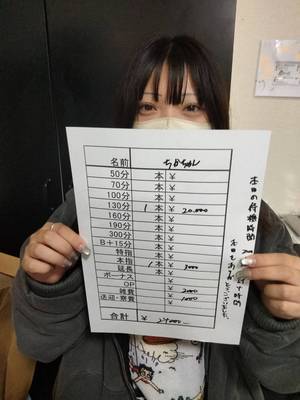 名前 ちかちゃん
50分 本 ¥
70分 本 ¥
100分 本 ¥
130分 1 本 ¥ 20.000
160分 本 ¥
190分 本 ¥
300分 本 ¥
B+15分 本 ¥
特指 本 ¥
本指 1 本 ¥ 3000
延長 本 ¥
ボーナス ¥
OP ¥
雑費 ¥ 2000
送迎・寮費 ¥ 1000
合計 ¥
本日の待機時間
時間